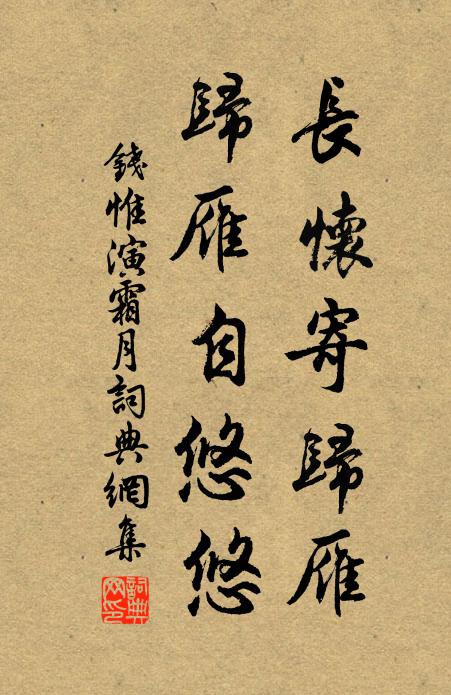 長懷寄歸雁
歸雁自悠悠
錢惟演霜月詞典網集
詞典網印